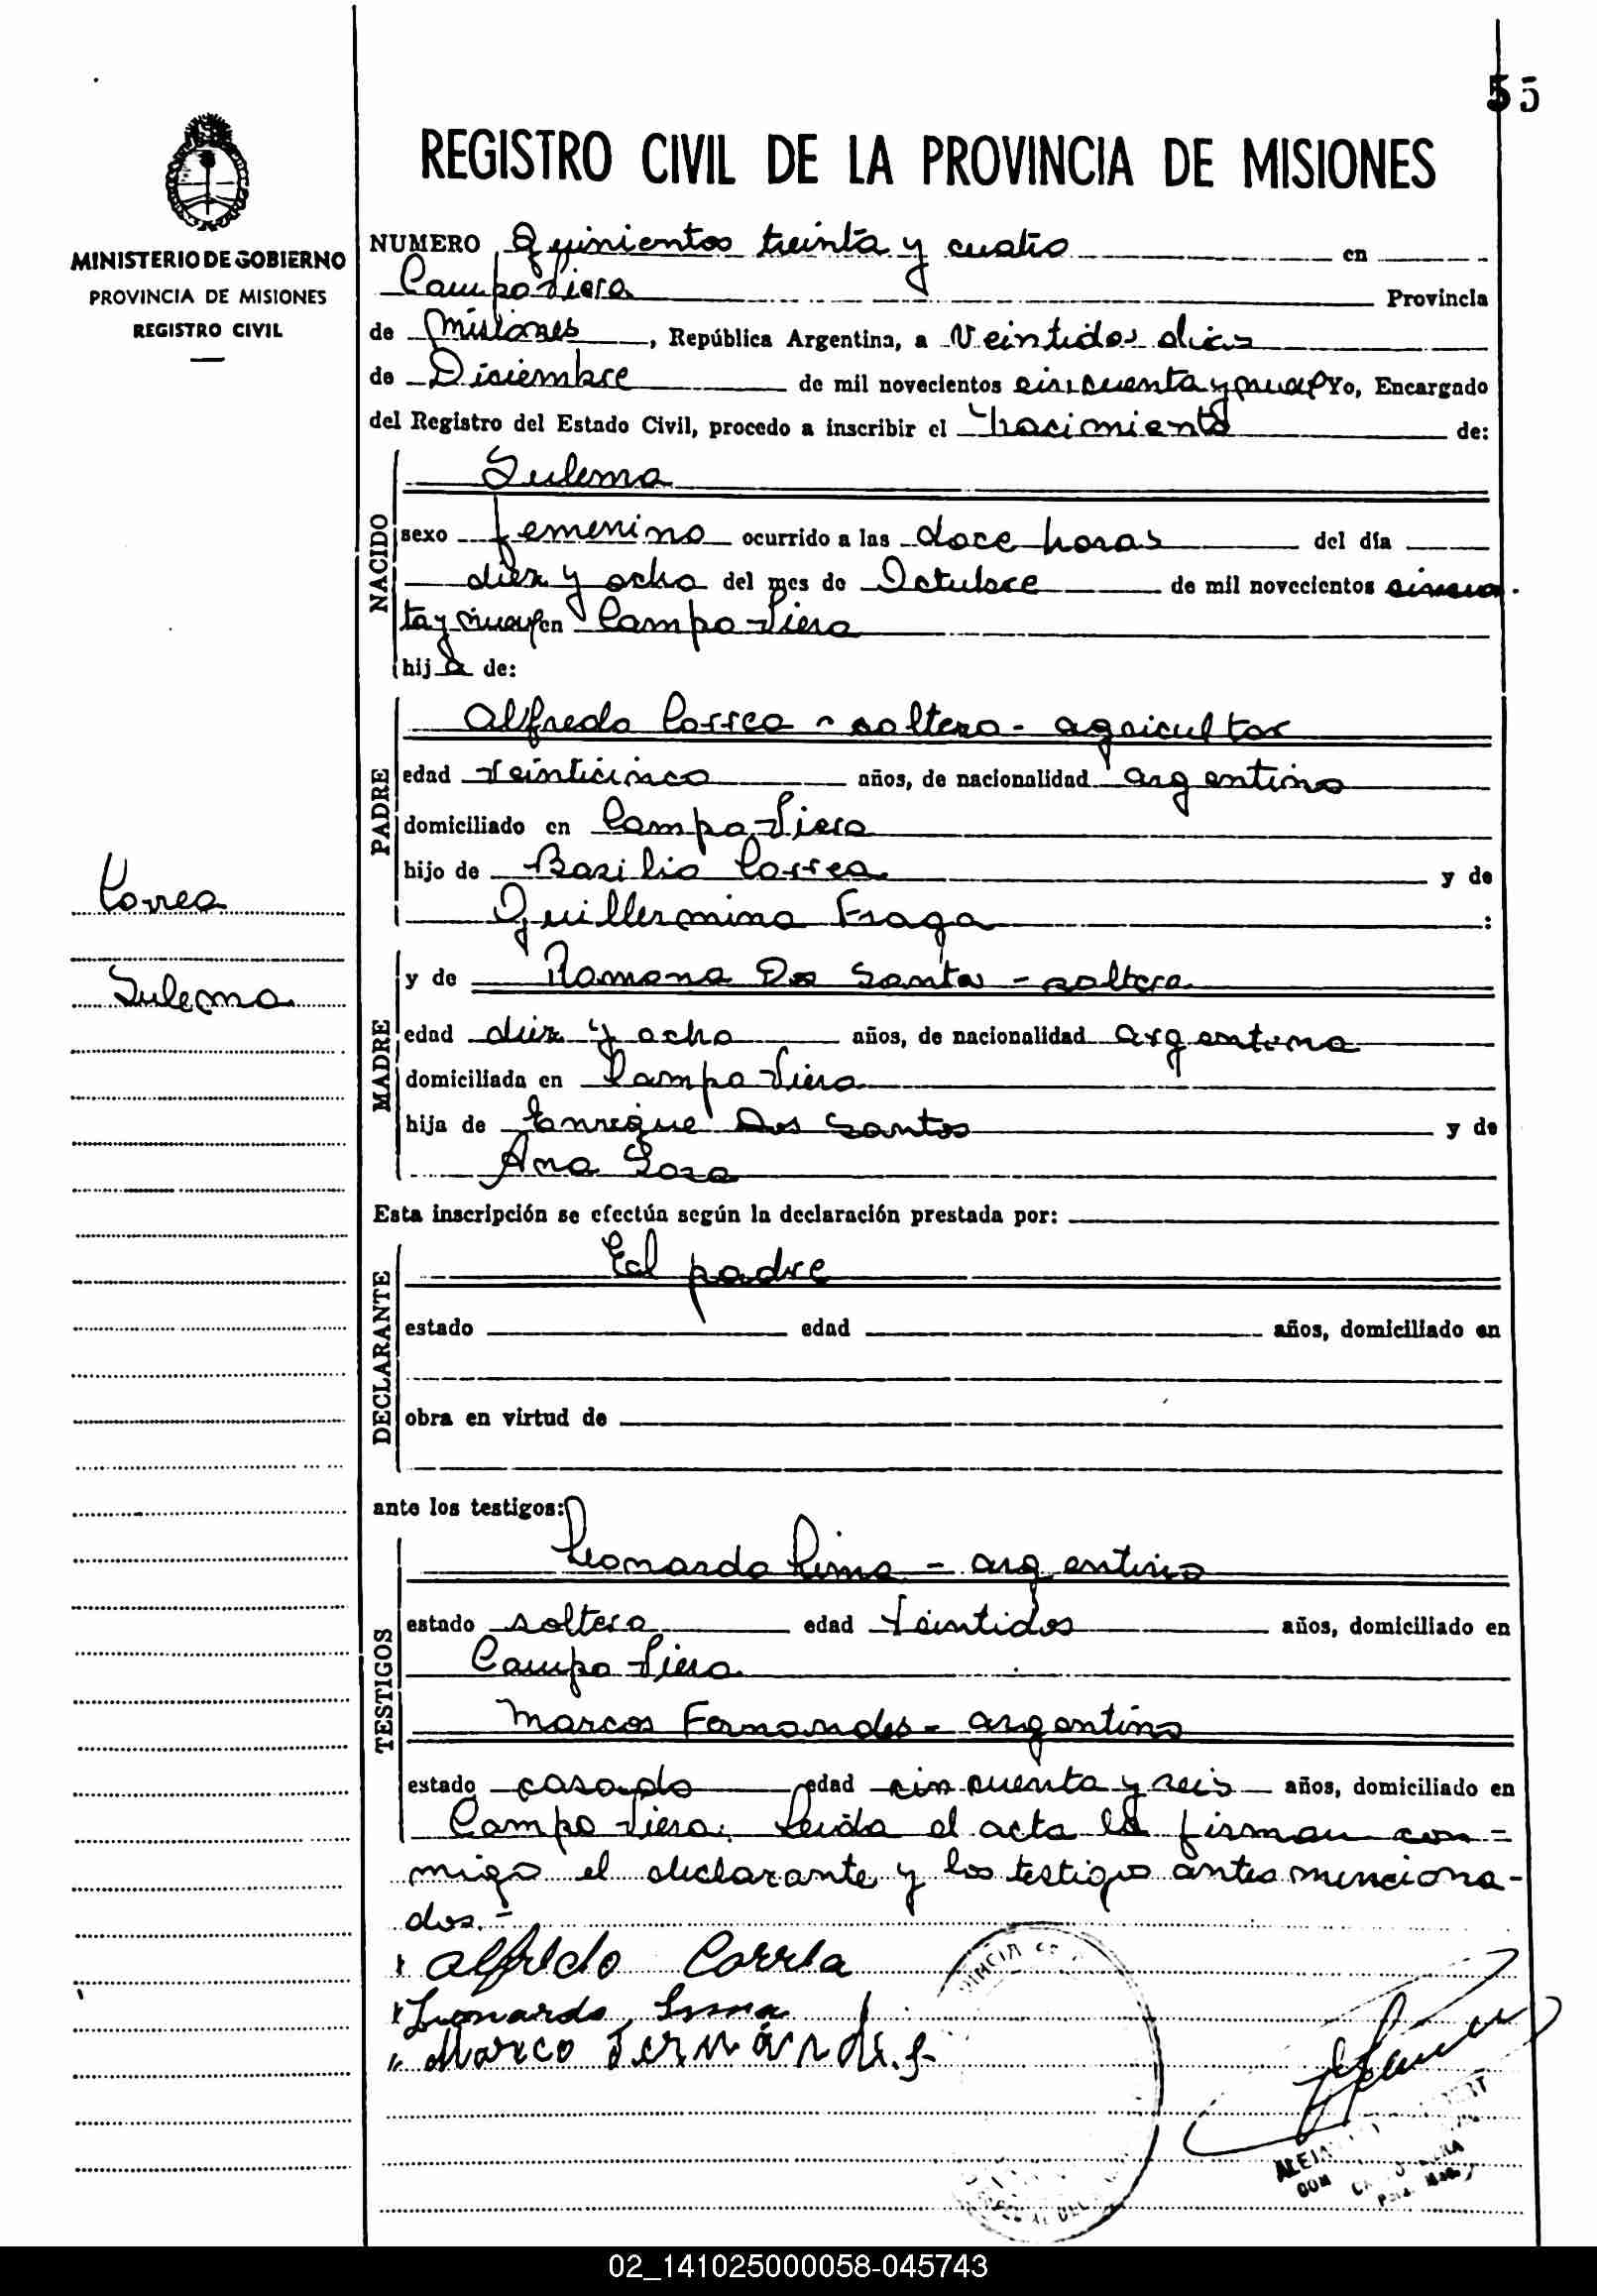 55
REGISTRO CIVIL DE LA PROVINCIA DE MISIONES
MINISTERIO DE GOBIERNO
PROVINCIA DE MISIONES
REGISTRO CIVIL
NUMERO Quinientos treinta y cuatro en
Campo Viera Provincia
de Misiones, República Argentina, a Veintidos dias
de Diciembre de mil novecientos cincuenta y nueve Yo, Encargado
del Registro del Estado Civil, procedo a inscribir el Nacimiento de:
NACIDO
Sulema
sexo femenino ocurrido a las doce horas del día
diez y ocho del mes de Octubre de mil novecientos cincuen-
ta y nueve en Campo Viera
hija de:
PADRE
Alfredo Correa - soltero - agricultor
edad veinticinco años, de nacionalidad argentino
domiciliado en Campo Viera
hijo de Basilio Correa y de
Guillermina Fraga :
Correa
Sulema
MADRE
y de Ramona Dos Santos - soltera
edad diez y ocho años, de nacionalidad argentina
domiciliada en Campo Viera
hija de Enrique Dos Santos y de
Ana Sosa
Esta inscripción se efectúa según la declaración prestada por:
DECLARANTE
El padre
estado edad años, domiciliado en
obra en virtud de
ante los testigos:
TESTIGOS
Leonardo Lima - argentino
estado soltero edad veintidos años, domiciliado en
Campo Viera
Marcos Fernandes - argentino
estado casado edad cincuenta y seis años, domiciliado en
Campo Viera. Leida el acta la firman con=
migo el declarante y los testigos antes menciona-
dos.-
Alfredo Correa
Leonardo Lima
Marco Fernández
02_141025000058-045743